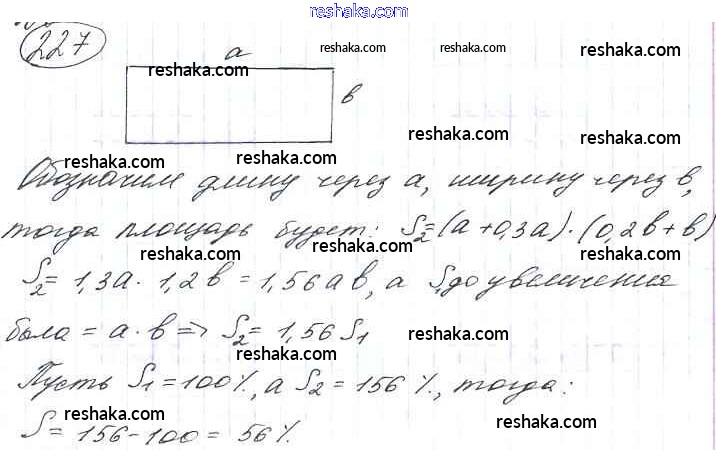 reshaka.com
227
a
reshaka.com
reshaka.com
reshaka.com
reshaka.com
в
reshaka.com
reshaka.com
reshaka.com
Обозначим длину через a, ширину через в,
reshaka.com
reshaka.com
тогда площадь будет: S₂=(a+0,3a)·(0,2в+в)
reshaka.com
reshaka.com
reshaka.com
S₂= 1,3a · 1,2в = 1,56aв, а S₁ до увеличения
reshaka.com
reshaka.com
была = a·в => S₂= 1,56 S₁
reshaka.com
reshaka.com
Пусть S₁=100%, а S₂=156%, тогда:
reshaka.com
reshaka.com
reshaka.com
S=156-100=56%